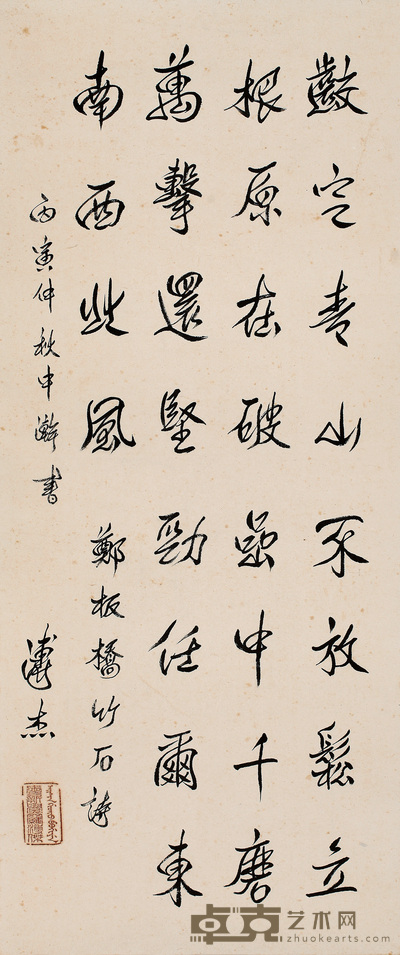 齩定青山不放鬆立
根原在破嵒中千磨
萬擊還堅勁任爾東
南西北風 鄭板橋竹石詩
丙寅仲秋中澣書 溥杰
卓克艺术网
www.zhuokearts.com